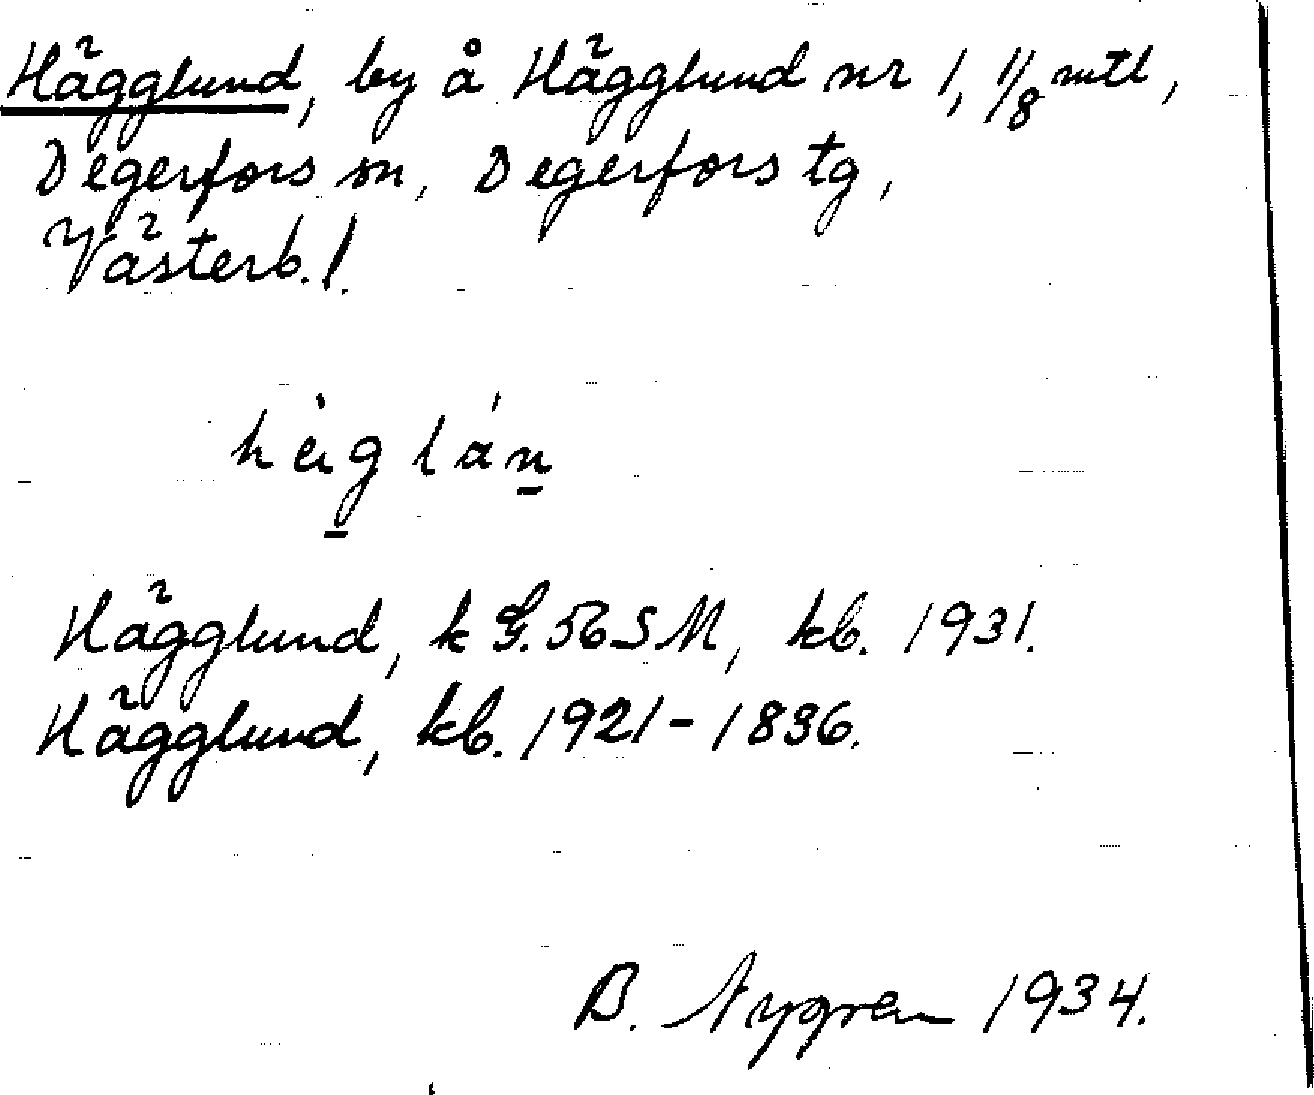 Hägglund, by å Hägglund nr 1, 1/8 mtl,
Degerfors sn, Degerfors tg,
Västerb. l.
Hägglund, k G. 56 SM, kb. 1931.
Hägglund, kb. 1921-1896.
B. Nygren 1934.